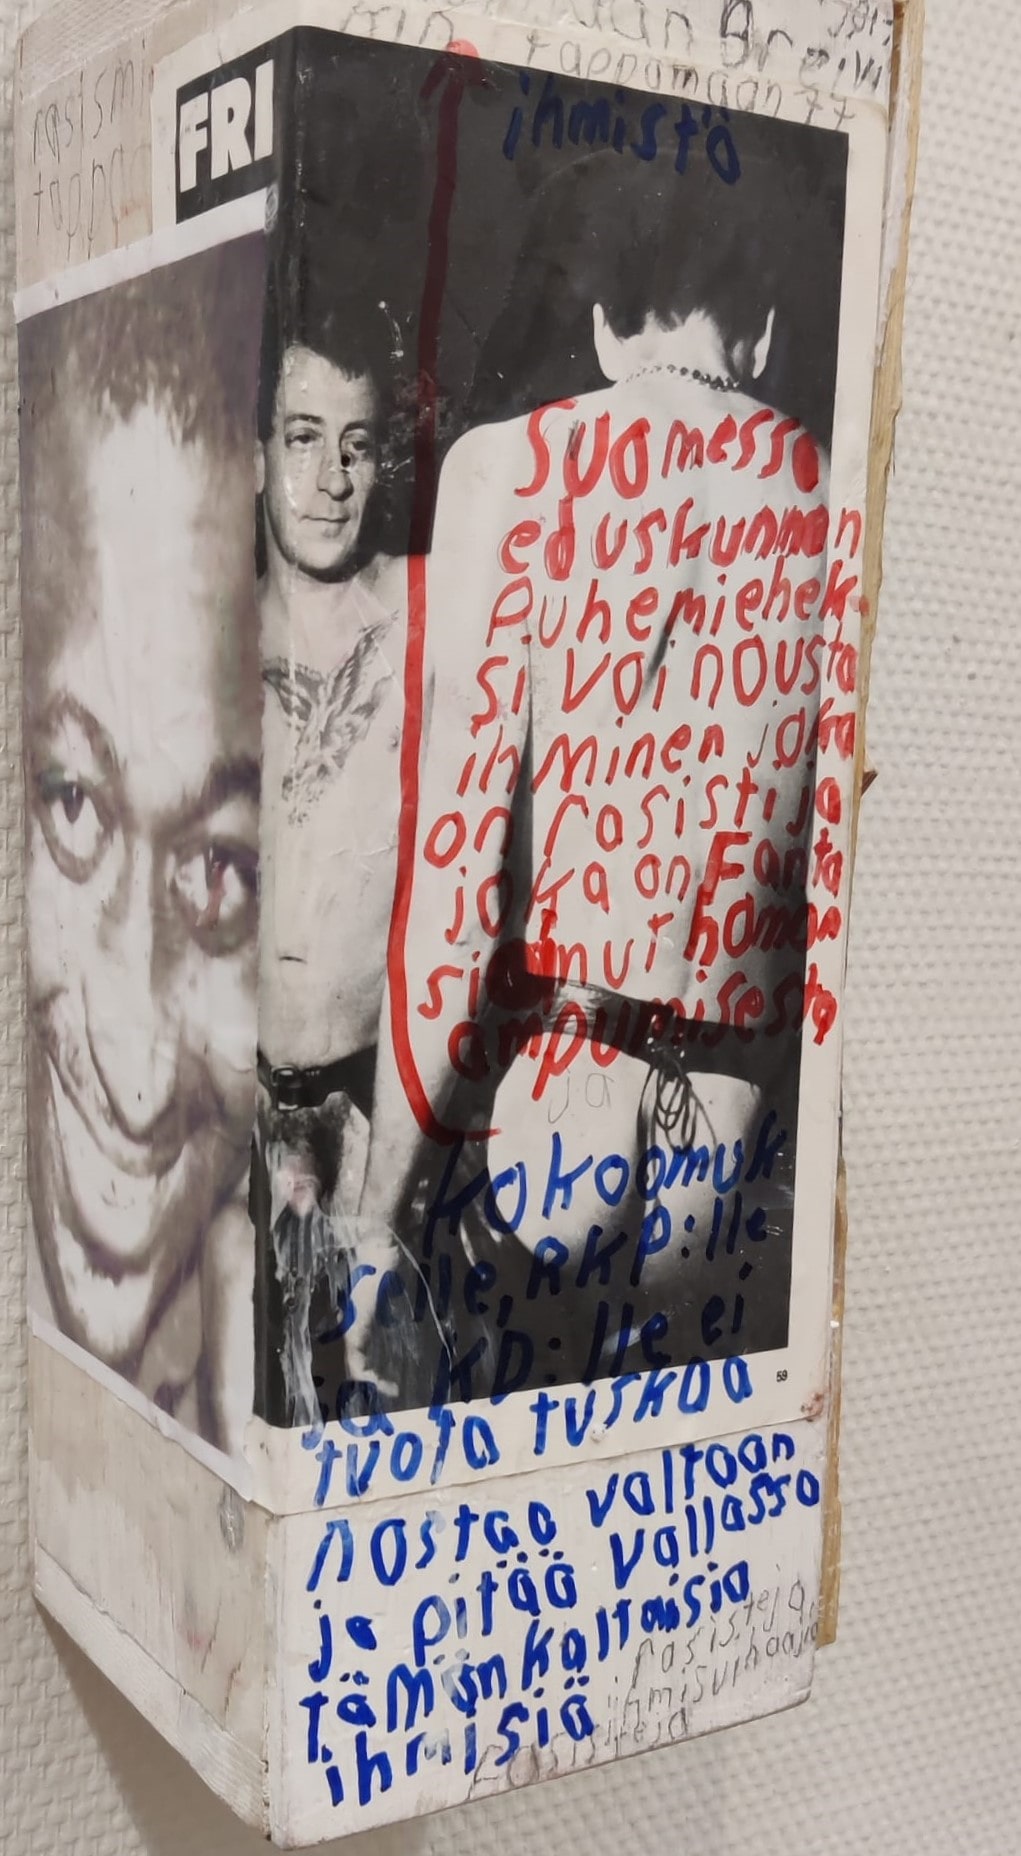 FRI
rasismi
tappamaan 77
ihmistä
Suomessa
eduskunnan
Puhemiehek-
si voi nousta
ihminen joka
on rasisti ja
joka on Fanta
sioinut homon
ampumisesta
ja
kokoomuk
selle, RKP:lle
ja KD:lle ei
tuota tuskaa
59
nostaa valtaan
ja pitää vallassa
tämän kaltaisia
ihmisiä
rasisteja,
ihmisvihaajia
Fasisteja